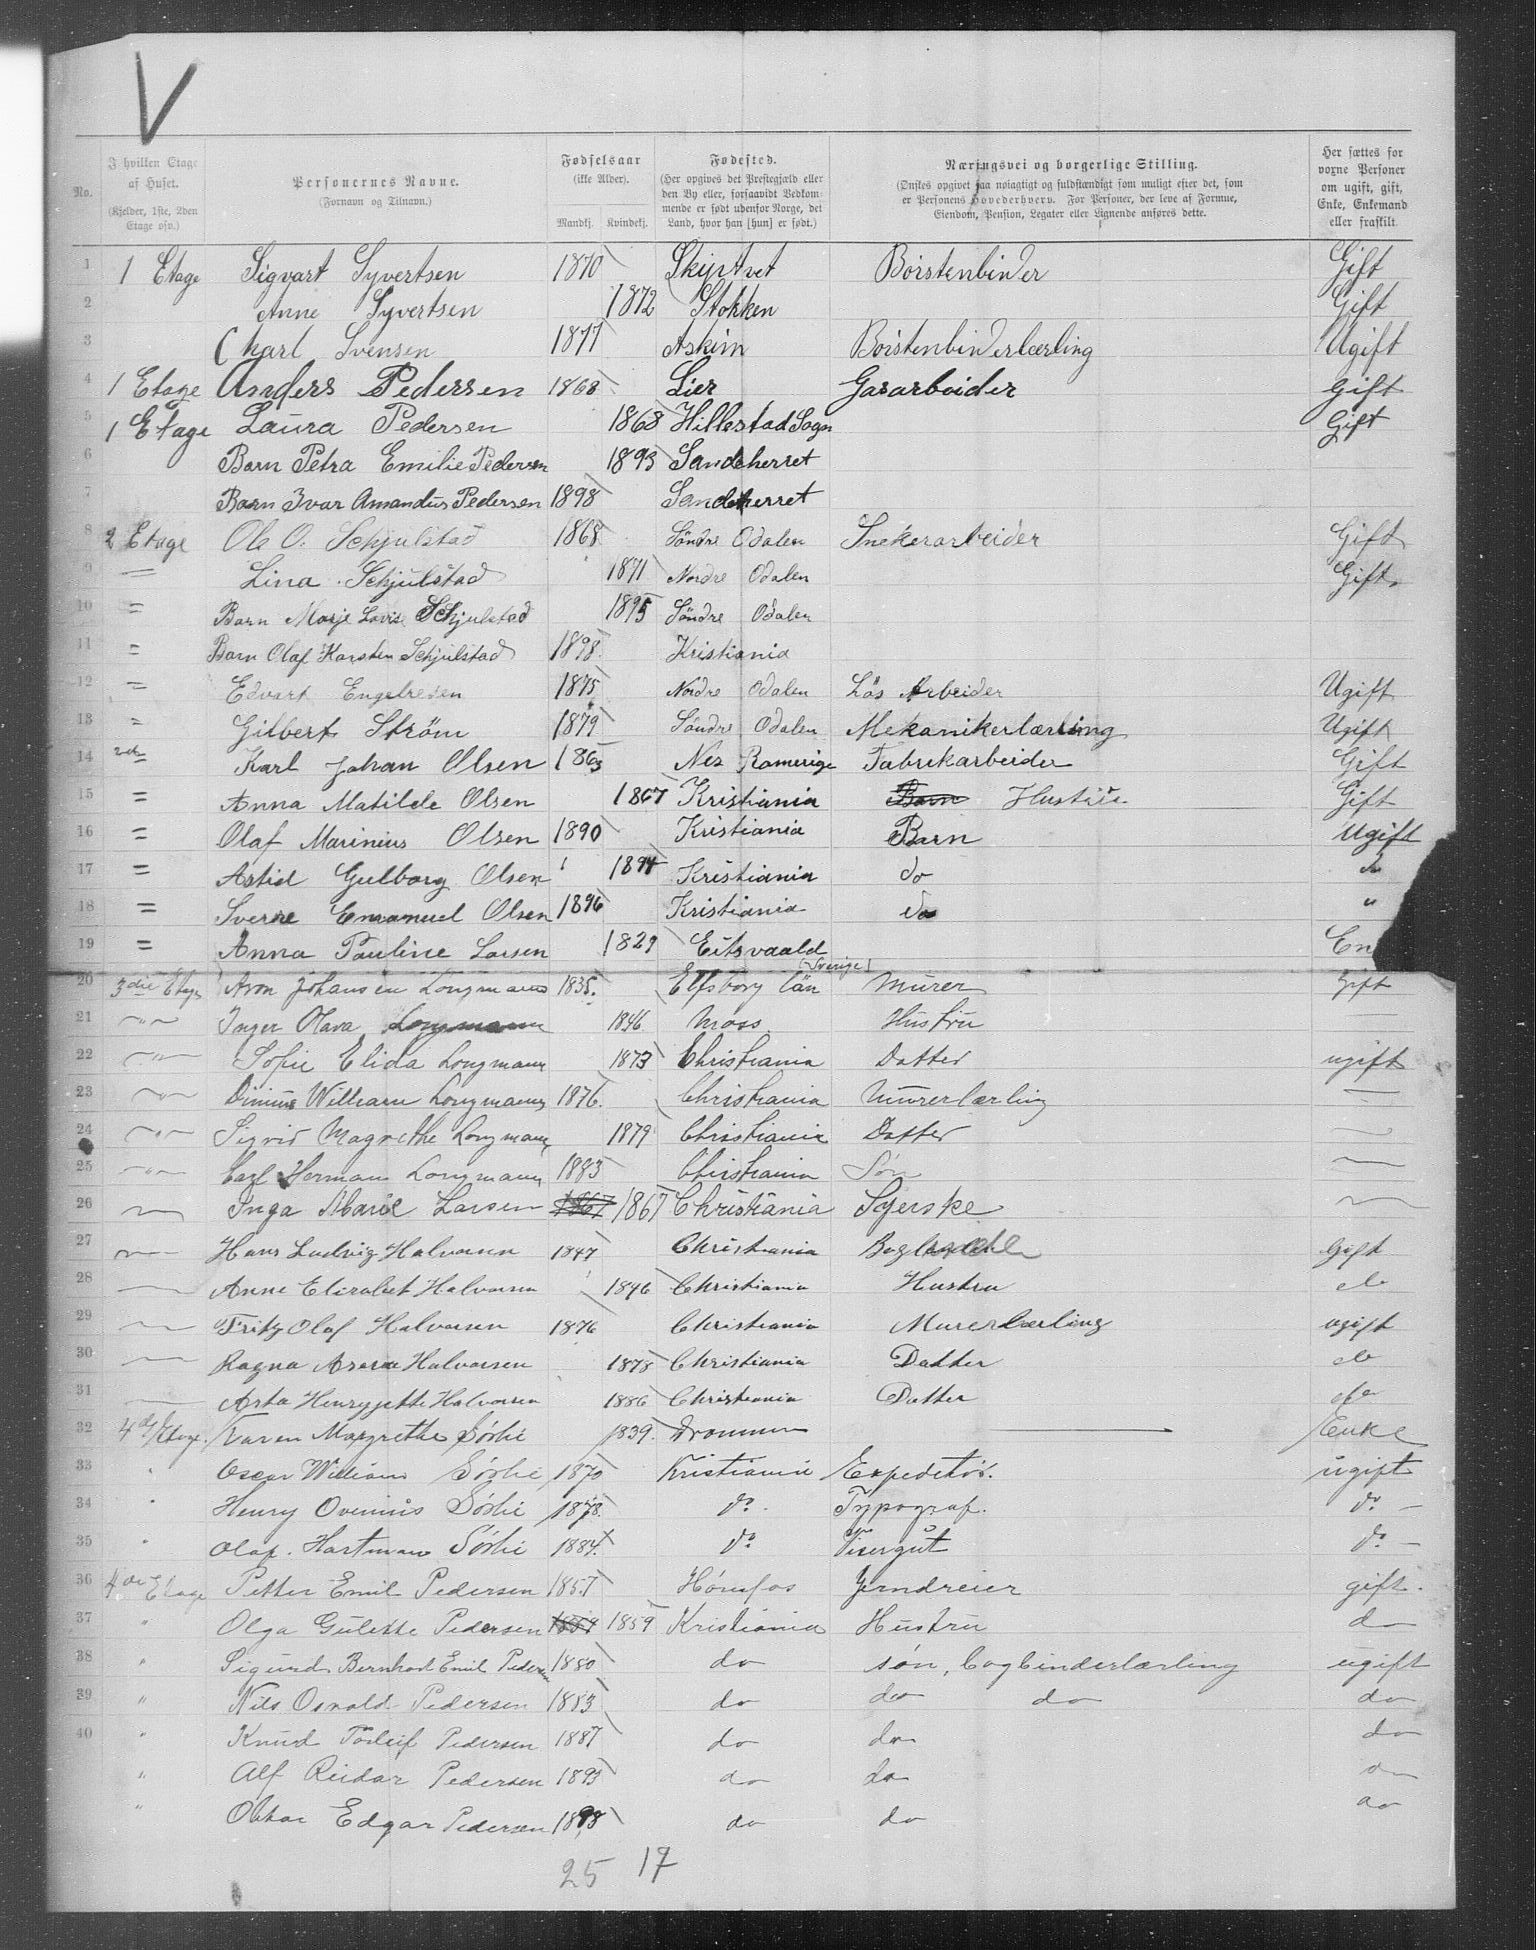 V
No.
I hvilken Etage af Huset. (Kjelder, 1ste, 2den Etage osv.)
Personernes Navne. (Fornavn og Tilnavn.)
Fødselsaar (ikke Alder). Mandkj. Kvindekj.
Fødested. (Her opgives det Prestegjæld eller den By eller, forsaavidt Vedkommende er født udenfor Norge, det Land, hvor han [hun] er født.)
Næringsvei og borgerlige Stilling. (Ønskes opgivet saa nøiagtigt og fuldstændigt som muligt efter det, som er Personens Hovederhverv. For Personer, der leve af Formue, Eiendom, Pension, Legater eller Lignende anføres dette.)
Her sættes for voxne Personer om ugift, gift, Enke, Enkemand eller fraskilt.
1 1 Etage Sigvart Syvertsen 1870 Skiptvet Börstenbinder Gift
2 Anne Syvertsen 1872 Stokken Gift
3 Charl Svensen 1877 Askim Börstenbinderlærling Ugift
4 1 Etage Anders Pedersen 1868 Lier Gasarbeider gift
5 1 Etage Laura Pedersen 1868 Hillestad Sogn Gift
6 Barn Petra Emilie Pedersen 1893 Sandeherret
7 Barn Ivar Amandus Pedersen 1898 Sandeherret
8 2 Etage Ole O. Schjulstad 1868 Söndre Odalen Snekerarbeider Gift
9 — Lina Schjulstad 1871 Nordre Odalen Gift
10 = Barn Marje Lovise Schjulstad 1895 Söndre Odalen
11 = Barn Olaf Karsten Schjulstad 1898 Kristiania
12 = Edvart Engebresen 1875 Nordre Odalen Lös Arbeider Ugift
13 = Gilbert Ström 1879 Söndre Odalen Mekanikerlærling Ugift
14 2den Karl Johan Olsen 1863 Nes Romerige Fabrikarbeider Gift
15 = Anna Matilde Olsen 1867 Kristiania Barn Hustru Gift
16 = Olaf Marinius Olsen 1890 Kristiania Barn Ugift
17 = Astid Gulborg Olsen 1894 Kristiania do
18 = Sverre Emanuel Olsen 1896 Kristiania do "
19 = Anna Pauline Larsen 1829 Eitsvaald En
20 3die Etage Aron Johansen Longmann 1835. Elfsborg län (Sverige) Murer Gift
21 —"— Inger Olava Longmann 1846 Moss Hustru
22 —"— Sofie Elida Longmann 1873 Christiania Datter ugift
23 —"— William Longmann 1876. Christiania Murerlærling —
24 —"— Sigrid Magrethe Longmann 1879 Christiania Datter —
25 —"— Carl Herman Longmann 1883 Christiania Søn —
26 — Inga Marie Larsen 1867 1867 Christiania Syerske —
27 — Hans Ludvig Halvorsen 1847 Christiania Gift
28 — Anne Elisabet Halvorsen 1846 Christiania Hustru do
29 — Fritz Olaf Halvorsen 1876 Christiania Murerlærling ugift
30 — Ragna Halvorsen 1878 Christiania Datter do
31 — Asta Henryjette Halvorsen 1886 Christiania Datter do
32 4de Etage. Karen Margrethe Sørlie 1839. Drammen — Enke
33 " Oscar William Sørlie 1870 Kristiania Expeditør. ugift
34 " Henry Ovenius Sørlie 1878. do. Typograf. do —
35 " Olaf. Hartman Sørlie 1884. do Visergut do —
36 4de Etage Petter Emil Pedersen 1857 Hønefos Jerndreier gift.
37 " Olga Gulette Pedersen 1859 1859 Kristiania Hustru do
38 " Sigurd Bernhard Emil Pedersen 1880 do søn, bogbinderlærling ugift
39 " Nils Osvald Pedersen 1883 do do do do
40 " Knud Torleif Pedersen 1887 do do do
" Alf Reidar Pedersen 1893 do do do
" Oskar Edgar Pedersen 1898 do do do
25 17